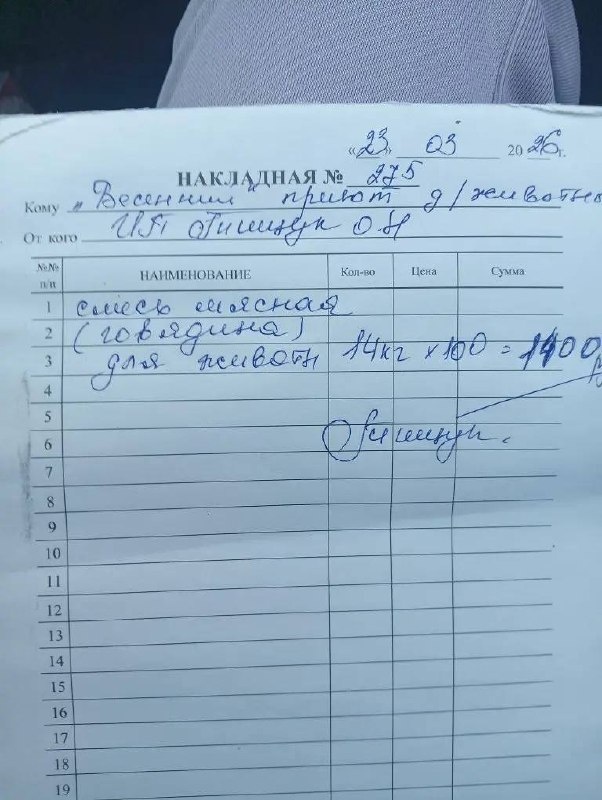 «23» 03 2026г.
НАКЛАДНАЯ № 275
Кому „Весенний" приют д/животн
От кого ИП Онищук О.Н
№№ п/п НАИМЕНОВАНИЕ Кол-во Цена Сумма
1 смесь мясная
2 (говядина)
3 для животн 14кг × 100 = 1400
4
5
6
7
8
9
10
11
12
13
14
15
16
17
18
19